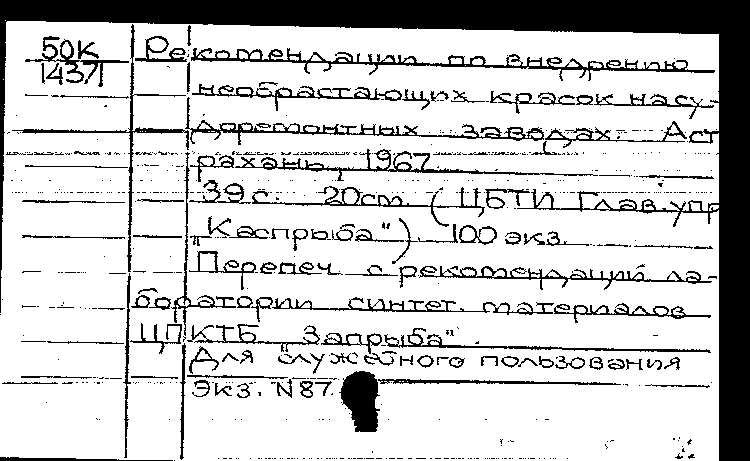 50К Рекомендации по внедрению
14371
необрастающих красок на су-
доремонтных заводах. Аст
рахань, 1967
39 с. 20 cm. (ЦБТИ Глав.упр
"Каспрыба") 100 экз.
"Перепеч. с рекомендаций ла-
боратории синтет. материалов
ЦПКТБ "Запрыба".
Для служебного пользования
Экз. N87